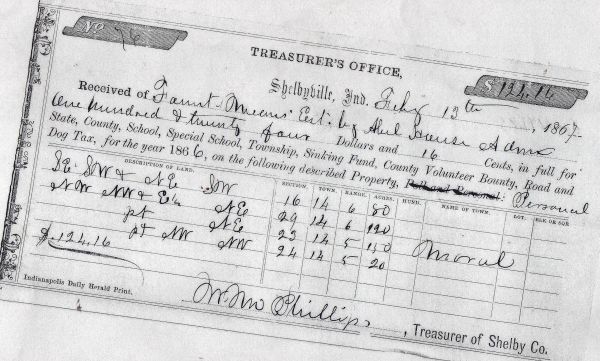 No 76
TREASURER'S OFFICE,
$ 124.16
Shelbyville, Ind. Feby 13th, 1867
Received of Faunt. Means' Est. by Abel House Adms
One hundred & twenty four Dollars and 16 Cents, in full for
State, County, School, Special School, Township, Sinking Fund, County Volunteer Bounty, Road and
Dog Tax, for the year 1866, on the following described Property, Real and Personal: Personal
DESCRIPTION OF LAND. SECTION. TOWN. RANGE. ACRES. HUND. NAME OF TOWN. LOT. BLK OR SQR
SE SW & NE SW 16 14 6 80
NW NW & E½ NE 29 14 6 120
pt NE 23 14 5 150 Moral
pt NW NW 24 14 5 20
$ 124.16
Indianapolis Daily Herald Print.
Phillips, Treasurer of Shelby Co.